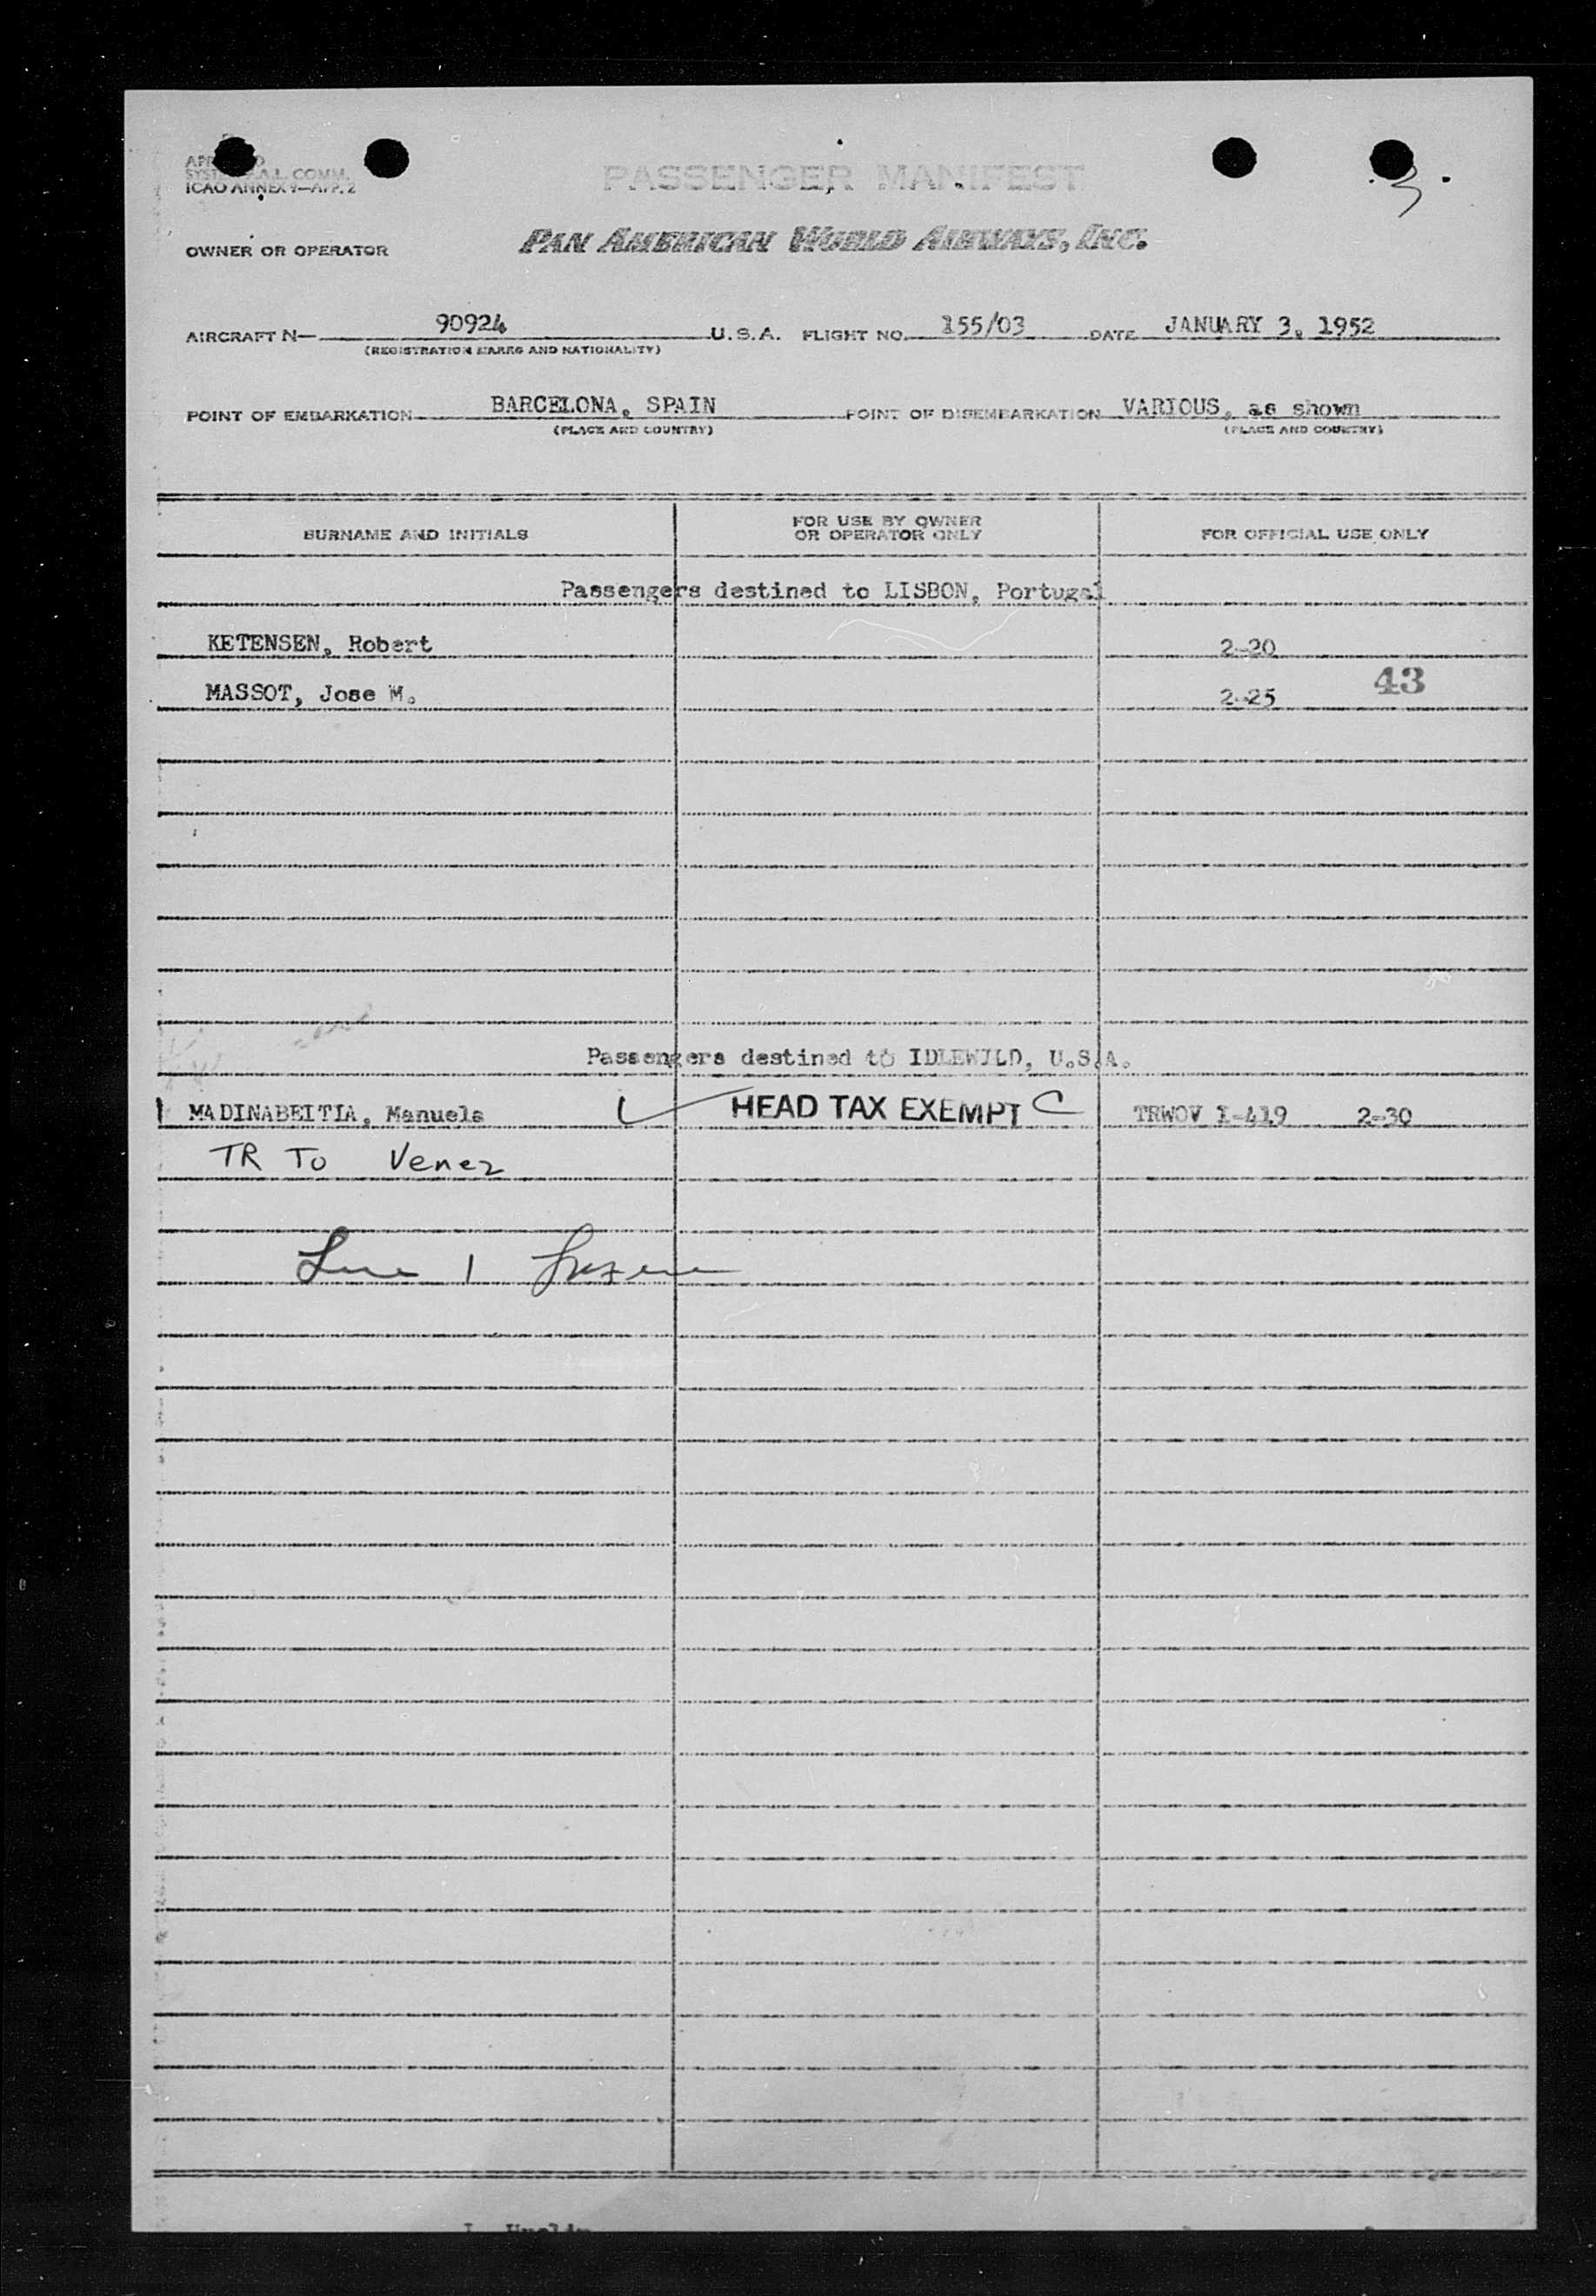 ICAO ANNEX 9—APP. 2
PASSENGER MANIFEST
OWNER OR OPERATOR PAN AMERICAN WORLD AIRWAYS, INC.
AIRCRAFT N— 90924 U.S.A. FLIGHT NO. 155/03 DATE JANUARY 3, 1952
(REGISTRATION MARKS AND NATIONALITY)
POINT OF EMBARKATION BARCELONA, SPAIN POINT OF DISEMBARKATION VARIOUS, as shown
(PLACE AND COUNTRY) (PLACE AND COUNTRY)
SURNAME AND INITIALS FOR USE BY OWNER OR OPERATOR ONLY FOR OFFICIAL USE ONLY
Passengers destined to LISBON, Portugal
KETENSEN, Robert 2-20
MASSOT, Jose M. 2-25 43
Passengers destined to IDLEWILD, U.S.A.
1 MADINABEITIA, Manuela HEAD TAX EXEMPT C TRWOV I-419 2-30
TR To Venez